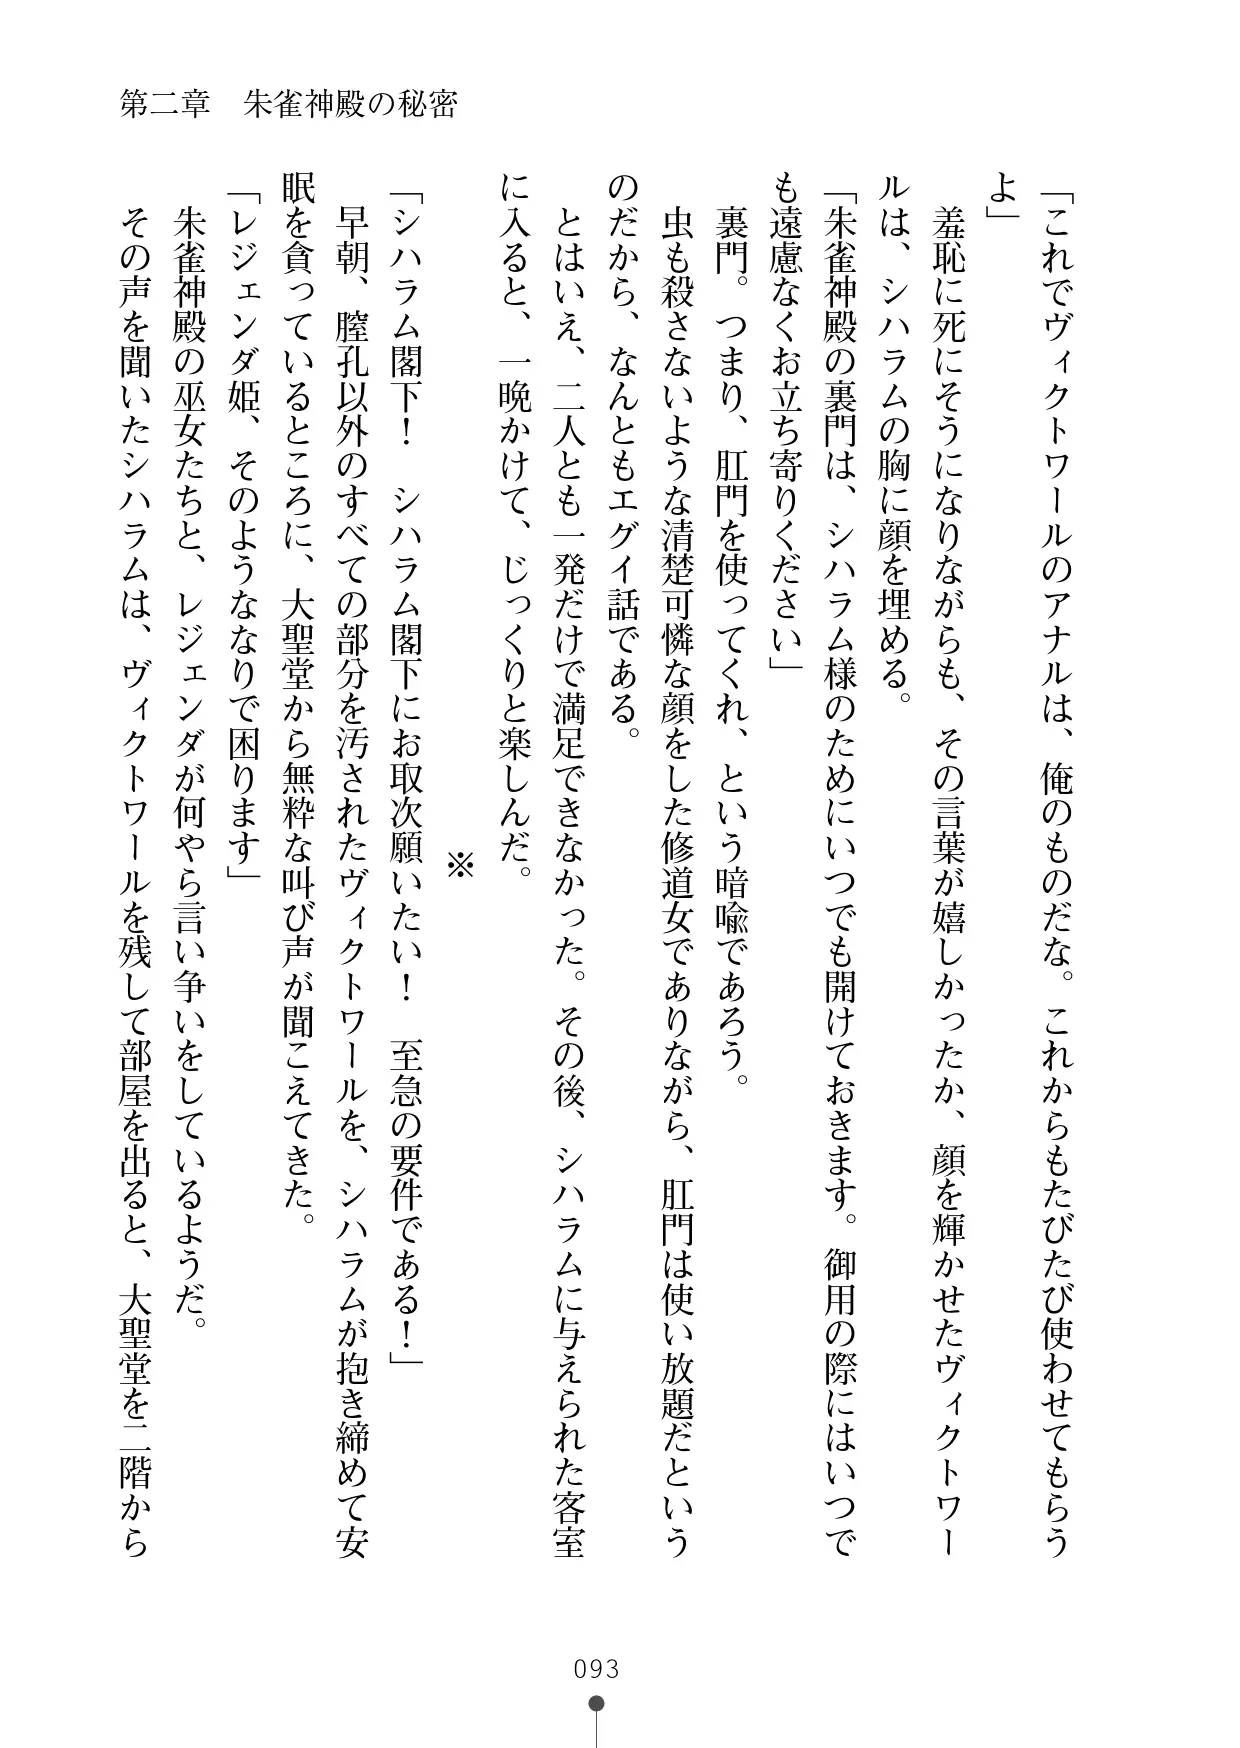 第二章　朱雀神殿の秘密
「これでヴィクトワールのアナルは、俺のものだな。これからもたびたび使わせてもらう
よ」
　羞恥に死にそうになりながらも、その言葉が嬉しかったか、顔を輝かせたヴィクトワー
ルは、シハラムの胸に顔を埋める。
「朱雀神殿の裏門は、シハラム様のためにいつでも開けておきます。御用の際にはいつで
も遠慮なくお立ち寄りください」
　裏門。つまり、肛門を使ってくれ、という暗喩であろう。
　虫も殺さないような清楚可憐な顔をした修道女でありながら、肛門は使い放題だという
のだから、なんともエグイ話である。
　とはいえ、二人とも一発だけで満足できなかった。その後、シハラムに与えられた客室
に入ると、一晩かけて、じっくりと楽しんだ。
※
「シハラム閣下！　シハラム閣下にお取次願いたい！　至急の要件である！」
　早朝、膣孔以外のすべての部分を汚されたヴィクトワールを、シハラムが抱き締めて安
眠を貪っているところに、大聖堂から無粋な叫び声が聞こえてきた。
「レジェンダ姫、そのようななりで困ります」
　朱雀神殿の巫女たちと、レジェンダが何やら言い争いをしているようだ。
　その声を聞いたシハラムは、ヴィクトワールを残して部屋を出ると、大聖堂を二階から
093